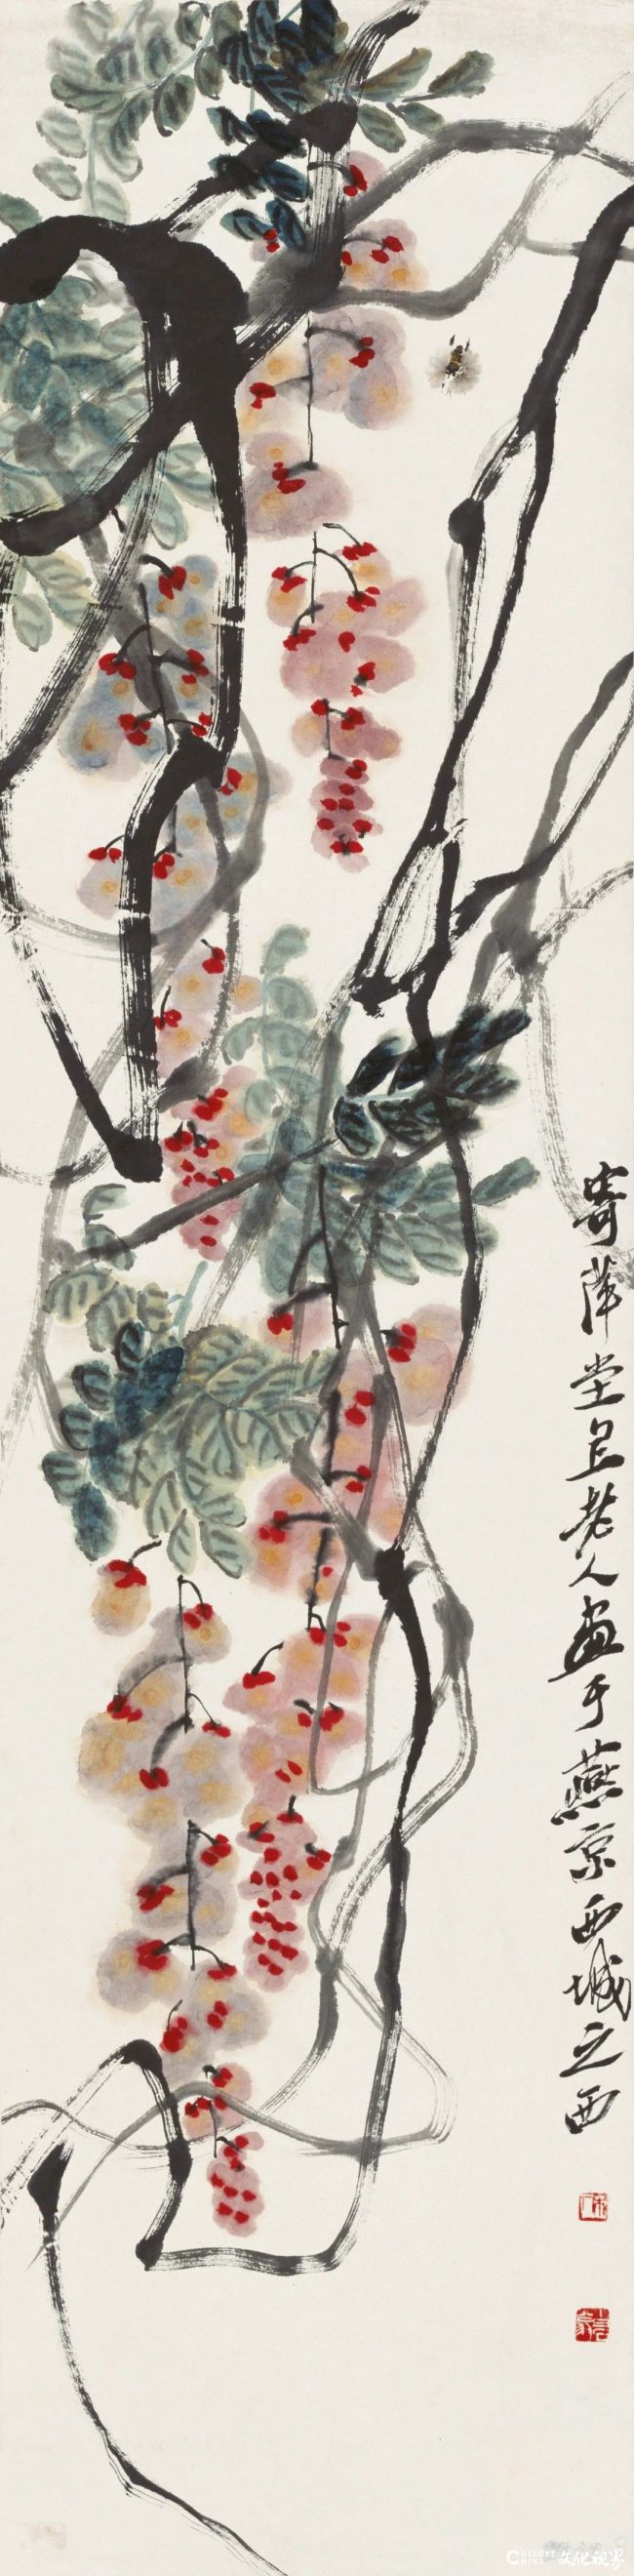 寄萍堂上老人画于燕京西城之西
木人
CULTURE CHINA 文化视界